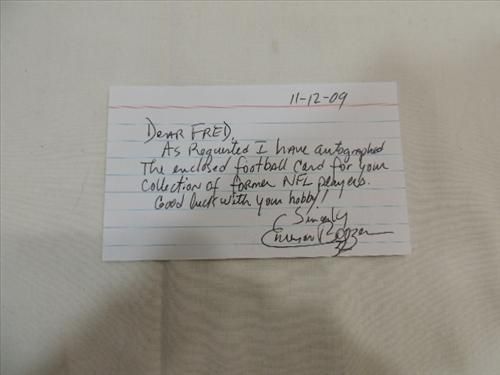 11-12-09
Dear Fred,
As Requested I have autographed
The enclosed football card for your
collection of former NFL players.
Good luck with your hobby!
Sincerely
Emerson Boozer
32